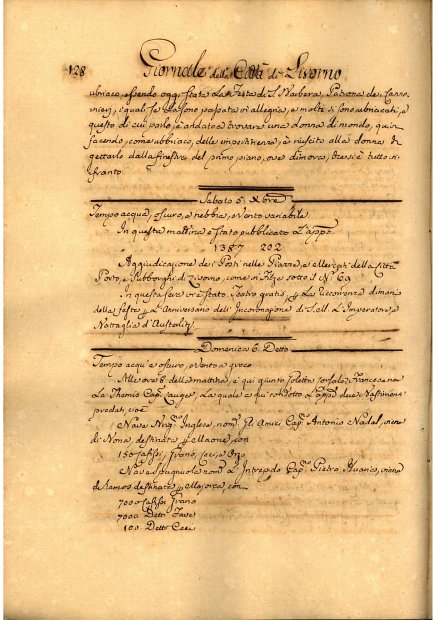 128 Giornale della Città di Livorno
ubriaco, essendo oggi stata La Festa di S. Barbera, Patrona de Canno-
nieri, i quali se la sono passata in allegria, e molti si sono ubriacati, e
questo di cui parlo, è andato a trovare una donna di mondo, quivi
facendo, come ubbriaco, delle impertinenze, è riescito alla donna di
gettarlo dalla finestra del primo piano, ove dimorava, e si è tutto in-
franto.
Sabato 5. Xbre
Tempo acqua, oscuro, e nebbia, e Vento variabile
In questa mattina è stato pubblicato L'app.o
1387 202
Aggiudicazione dei Posti nelle Piazze, e alle vie della Città
Porto, e Subborghi di Livorno, come in Filza sotto il N.o 69
In questa sera vi è stato Teatro gratis, p. La ricorrenza di man
delle feste p. L'Aniversario dell' Incoronazione di S. M. L'Imperatore, e
Battaglia d'Austerlitz
Domenica 6. Detto
Tempo acqua e oscuro, e Vento a greco
Alle ore 8 della mattina, è qui giunto Goletta Corsale Francese
La Themis Cap. la quale à qui condotto L'app.i due Bastimenti
predati, cioè
Nave Inglese, nom. gl' Amici Cap. Antonio Nadal, viene
di destinata p. con
150 Cafissi, Grano, Ceci, e Orzo
Nave Spagnuola nom. L'Intrepido Cap. Pietro viene
di destinata p. con
7000 Cafissi Grano
7000 Detti Fave
100 Detti Ceci